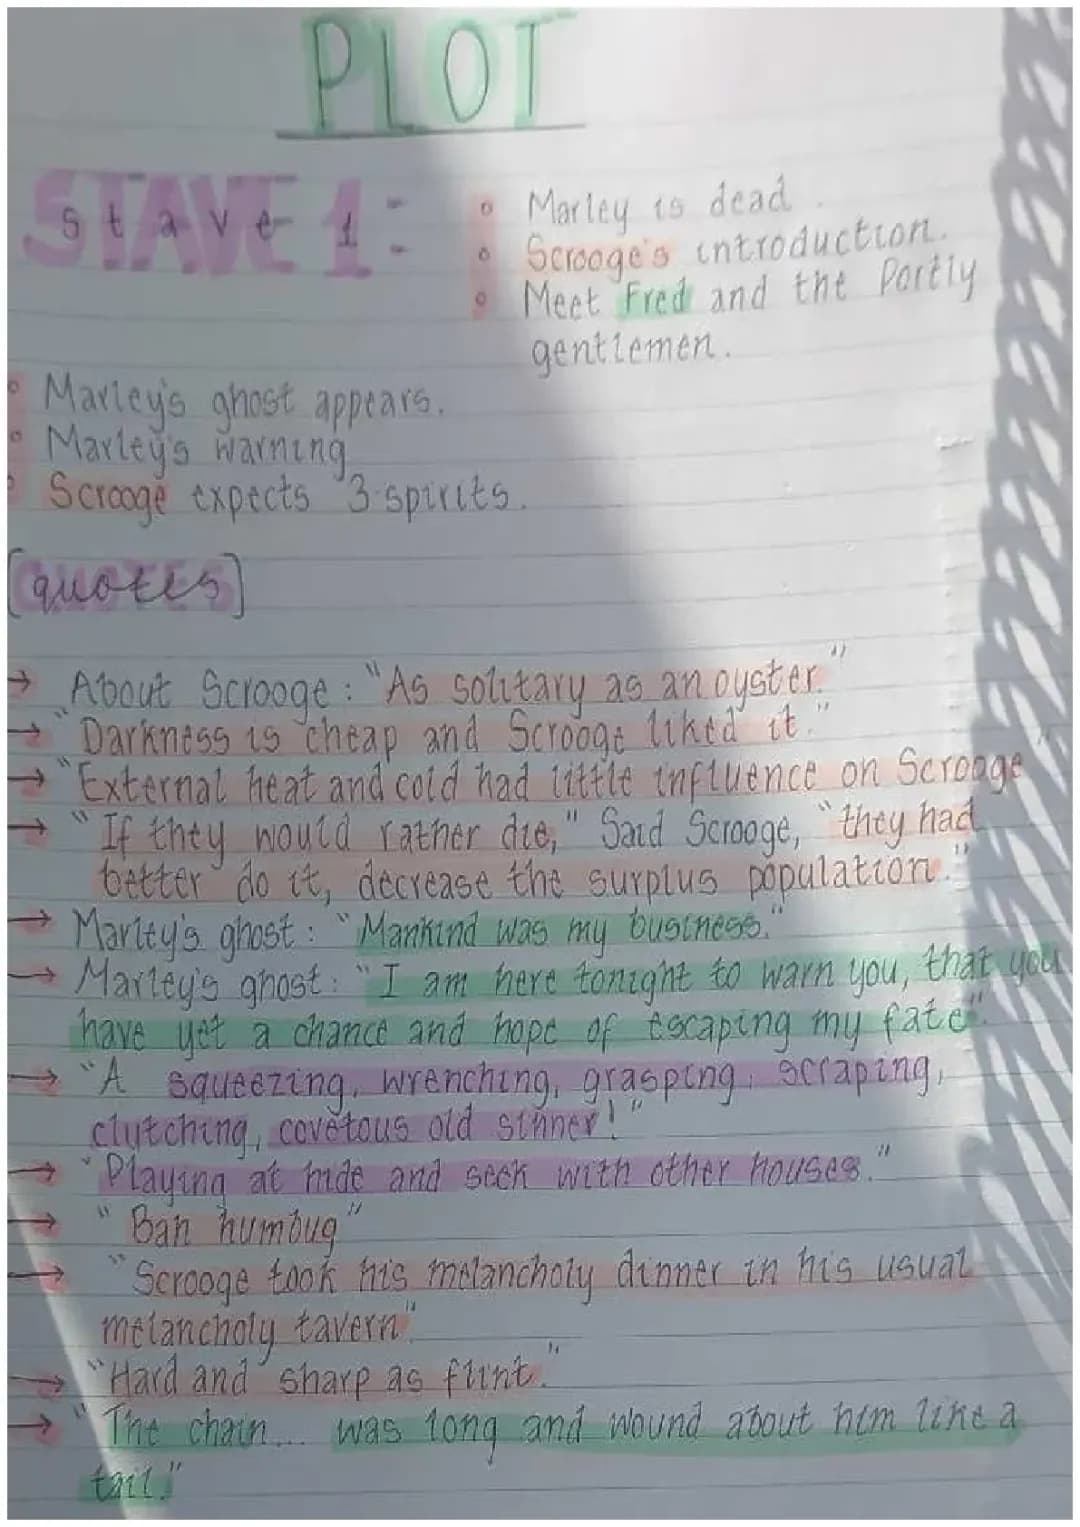 PLOT
STAVE 1:
stave 1
• Marley is dead.
• Scrooge's introduction.
• Meet Fred and the Portly
gentlemen.
• Marley's ghost appears.
• Marley's warning
• Scrooge expects 3 spirits.
[quotes]
→ About Scrooge: "As solitary as an oyster."
→ "Darkness is cheap and Scrooge liked it."
→ "External heat and cold had little influence on Scrooge"
→ "If they would rather die," Said Scrooge, "they had
better do it, decrease the surplus population."
→ Marley's ghost: "Mankind was my business."
→ Marley's ghost: "I am here tonight to warn you, that you
have yet a chance and hope of escaping my fate".
→ "A squeezing, wrenching, grasping, scraping,
clutching, covetous old sinner!"
→ "Playing at hide and seek with other houses."
→ "Bah humbug"
→ "Scrooge took his melancholy dinner in his usual
melancholy tavern".
→ "Hard and sharp as flint."
→ "The chain... was long and wound about him like a
tail."